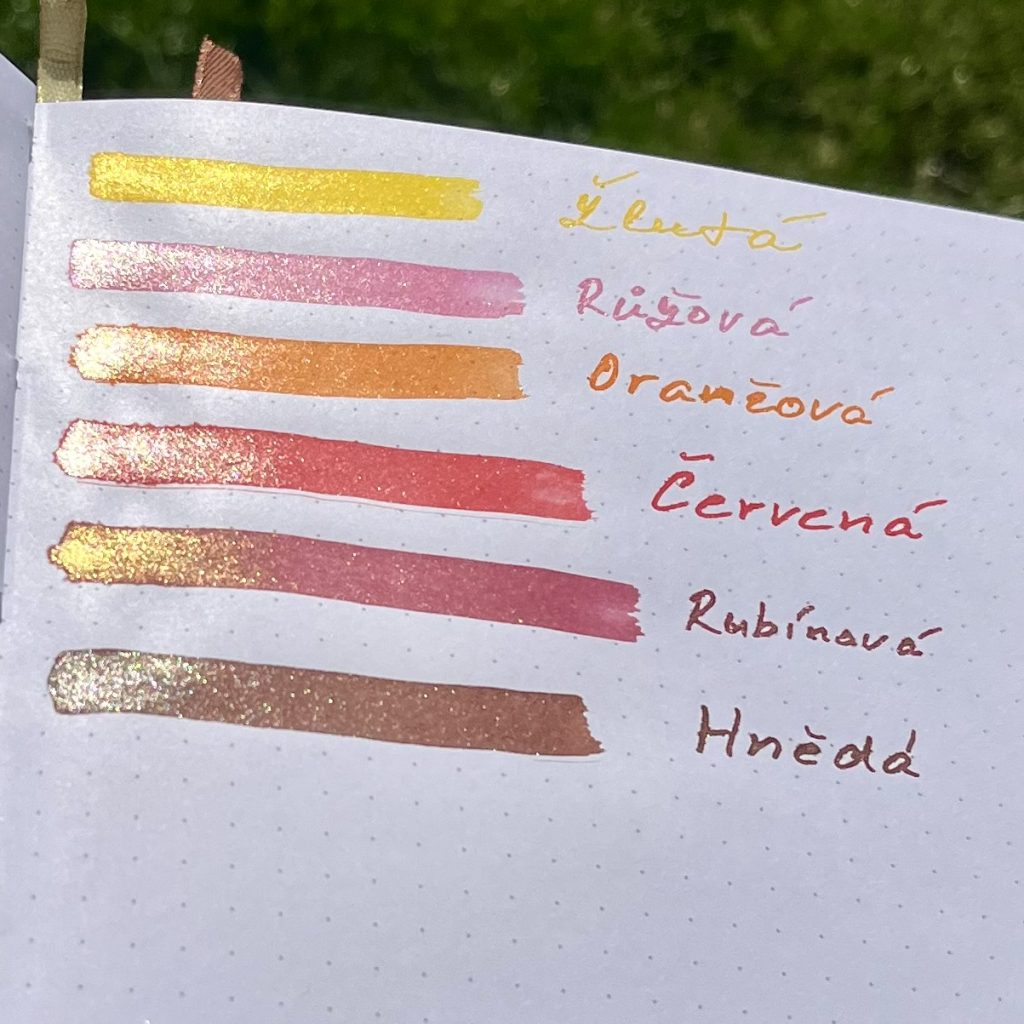 Žlutá
Růžová
Oranžová
Červená
Rubínová
Hnědá